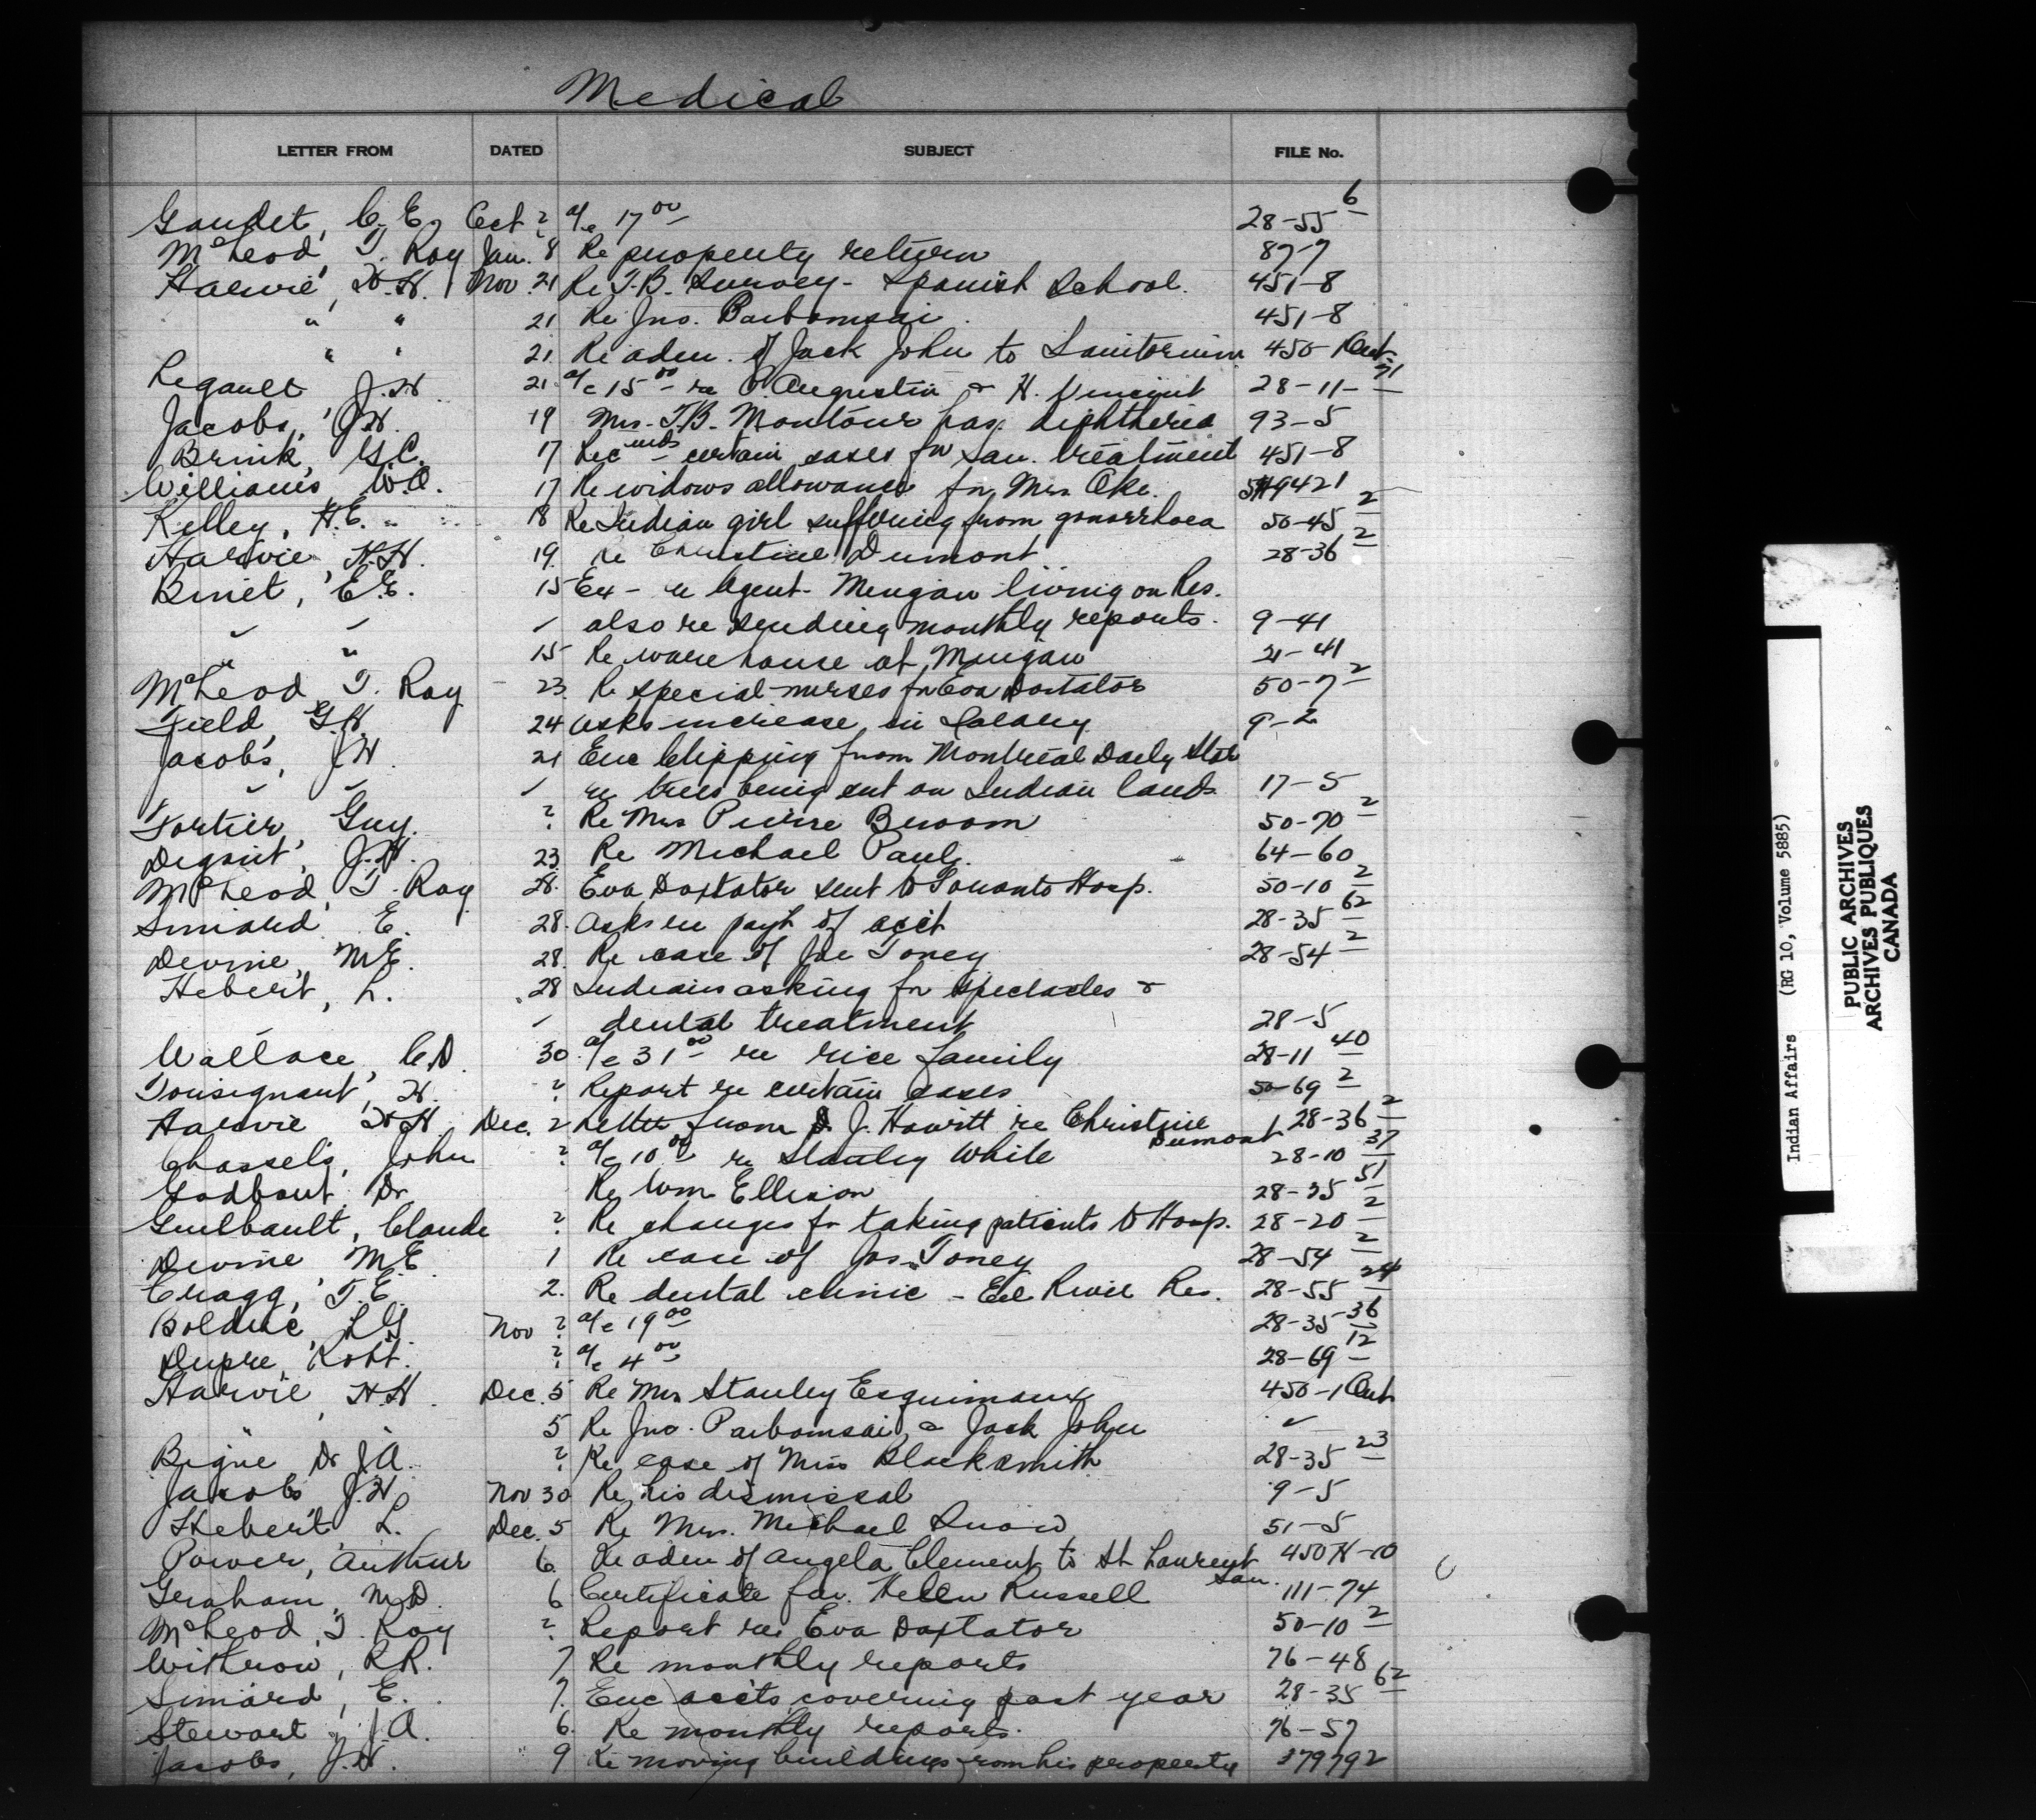 Medical
LETTER FROM DATED SUBJECT FILE No.
Gaudet, C. E. Oct ? a/c 17 00 28-55 6
McLeod, T. Roy Jan. 8 Re property return 87-7
Harvie, H.H. Nov. 21 Re T.B. Survey - Spanish School. 451-8
" " 21 Re Jno. Paibomsai. 451-8
" " 21 Re adm. of Jack John to Sanitorium 450-1 Ont.
Legault J.H. 21 a/c 15 00 re P. Augustin & H. Vincent 28-11-71
Jacobs, J.H. 19 Mrs. T.B. Montour has diphtheria 93-5
Brink, G.C. 17 Recmds certain cases for san. treatment 451-8
Williams W.A. 17 Re widows allowance for Mrs. Oke. 9421
Kelley, H.E. 18 Re Indian girl suffering from gonorrhoea 50-45 2
Harvie, H.H. 19. re Christine Dumont 28-36 2
Binet, E.E. 15 Ex - re Agent - Mingan living on Res.
" " " also re sending monthly reports. 9-41
" " 15 Re warehouse at Mingan 21-41
McLeod, T. Roy 23. Re special nurses for Eva Doxtator 50-7 2
Field, G.H. 24 Asks increase in Salary. 9-2
Jacobs, J.H. 21 Enc Clipping from Montreal Daily Star
" " " re trees being cut on Indian lands. 17-5
Fortier, Guy. ? Re Mrs Pierre Buroom 50-70 2
J.H. 23. Re Michael Paul. 64-60
McLeod, T. Roy 28. Eva Doxtator sent to Toronto Hosp. 50-10 2
Simard E. 28. Asks re payt of acct 28-35 62
Devine, M.E. 28. Re case of Joe Toney 28-54 2
Hebert, L. 28 Indians asking for spectacles &
" dental treatment 28-5
Wallace, C.D. 30. a/c 31 00 re rice family 28-11 40
Tousignant, H. ? Report re certain cases 50-69 2
Harvie H.H. Dec. 2 Letter from Dr. J. Howitt re Christine Dumont 28-36 2
Chassels, John ? a/c 10 00 re Stanley White 28-10 37
Godbout, Dr Re Wm Ellison 28-35 51
Guilbault, Claude ? Re charges for taking patients to Hosp. 28-20 2
Devine M.E. 1 Re case of Jos. Toney 28-54 2
Cragg, T.E. 2. Re dental clinic - Eel River Res. 28-55 24
Bolduc, L.G. Nov ? a/c 19 00 28-35-36
Dupre, Robt. ? a/c 4 00 28-69 12
Harvie, H.H. Dec. 5 Re Mrs Stanley Esquimaux 450-1 Ont
5 Re Jno. Paibomsai & Jack John "
Bigue Dr J.A. ? Re case of Miss Blacksmith 28-35 23
Jacobs J.H. Nov 30 Re his dismissal 9-5
Hebert L. Dec. 5 Re Mrs. Michael Snow 51-5
Power, Arthur 6. Re adm of Angela Clement to St Laurent San. 450 -10
Graham, M.D. 6 Certificate for Helen Russell 111-74
McLeod, T. Roy ? Report re Eva Doxtator 50-10 2
Withrow, R.R. 7 Re monthly reports 76-48
Simard, E. 7. Enc accts covering past year 28-35 62
Stewart, J.A. 6. Re monthly reports. 76-57
Jacobs, J.H. 9 Re moving buildings from his property 379792
Indian Affairs (RG 10, Volume 5885)
PUBLIC ARCHIVES
ARCHIVES PUBLIQUES
CANADA